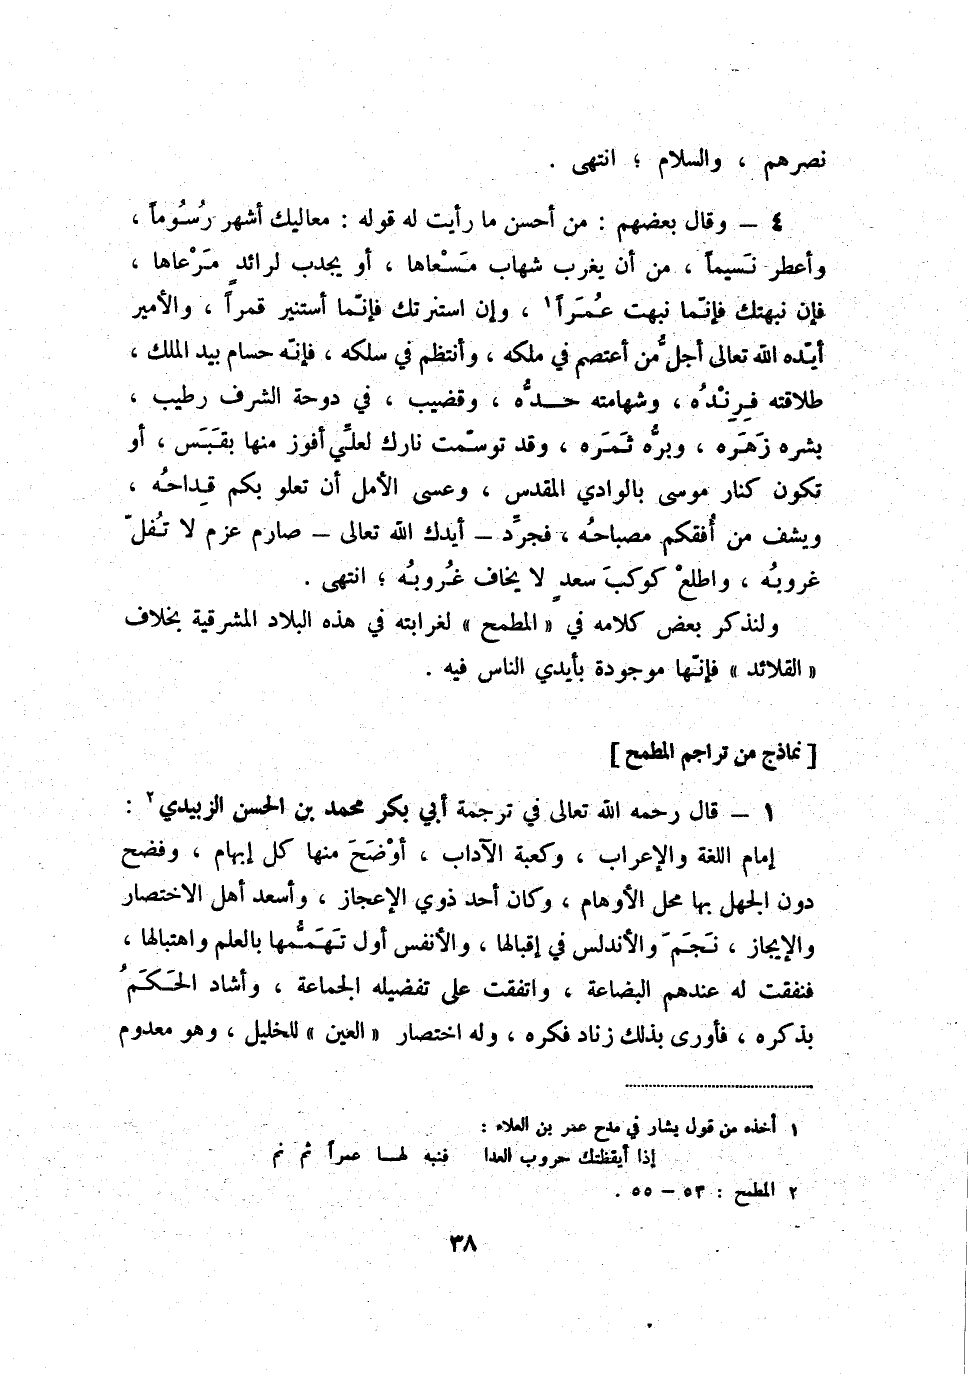 نصرهم ، والسلام ؛ انتهى .
٤ – وقال بعضهم : من أحسن ما رأيت له قوله : معاليك أشهر رُسُوماً ،
وأعطر نَسيماً ، من أن يغرب شهاب مَسْعاها ، أو يجدب لرائدٍ مَرْعاها ،
فإن نبهتك فإنّما نبهت عُمَراً١ ، وإن استنرتك فإنّما أستنير قمراً ، والأمير
أيّده الله تعالى أجلُّ من أعتصم في ملكه ، وأنتظم في سلكه ، فإنّه حسام بيد الملك ،
طلاقته فِرِنْدُه ، وشهامته حدُّه ، وقضيب ، في دوحة الشرف رطيب ،
بشره زَهَره ، وبرُّه ثَمَره ، وقد توسّمت نارك لعلّي أفوز منها بقَبَس ، أو
تكون كنار موسى بالوادي المقدس ، وعسى الأمل أن تعلو بكم قِداحُه ،
ويشف من أُفقكم مصباحُه ، فجرِّد – أيدك الله تعالى – صارم عزم لا تُفلّ
غروبُه ، واطلعْ كوكبَ سعدٍ لا يخاف غُروبُه ؛ انتهى .
ولنذكر بعض كلامه في « المطمح » لغرابته في هذه البلاد المشرقية بخلاف
« القلائد » فإنّها موجودة بأيدي الناس فيه .
[ نماذج من تراجم المطمح ]
١ – قال رحمه الله تعالى في ترجمة أبي بكر محمد بن الحسن الزبيدي٢ :
إمام اللغة والإعراب ، وكعبة الآداب ، أوْضَحَ منها كل إبهام ، وفضح
دون الجهل بها محل الأوهام ، وكان أحد ذوي الإعجاز ، وأسعد أهل الاختصار
والإيجاز ، نَجَمَ والأندلس في إقبالها ، والأنفس أول تَهَمُّمها بالعلم واهتبالها ،
فنفقت له عندهم البضاعة ، واتفقت على تفضيله الجماعة ، وأشاد الحَكَمُ
بذكره ، فأورى بذلك زناد فكره ، وله اختصار « العين » للخليل ، وهو معدوم
١ أخذه من قول بشار في مدح عمر بن العلاء :
إذا أيقظتك حروب العدا فنبه لهـا عمراً ثم نم
٢ المطمح : ٥٣ – ٥٥ .
٣٨